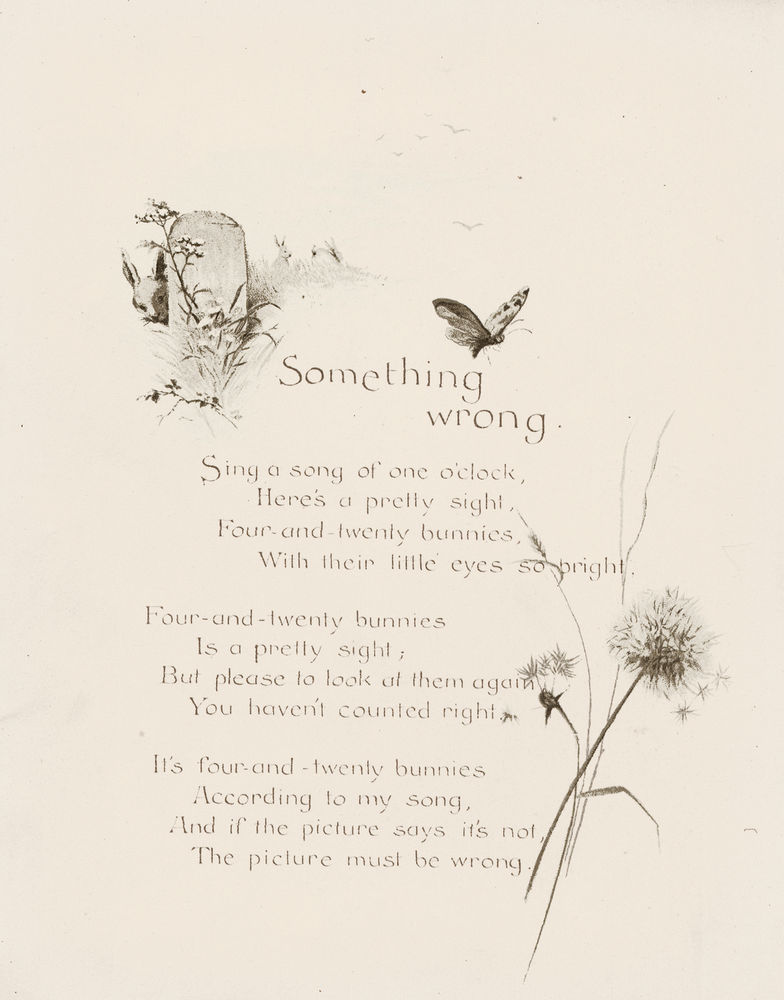 Something
wrong.
Sing a song of one o'clock,
Here's a pretty sight,
Four-and-twenty bunnies,
With their little eyes so bright.
Four-and-twenty bunnies
Is a pretty sight;
But please to look at them again,
You haven't counted right.
It's four-and-twenty bunnies
According to my song,
And if the picture says it's not,
The picture must be wrong.